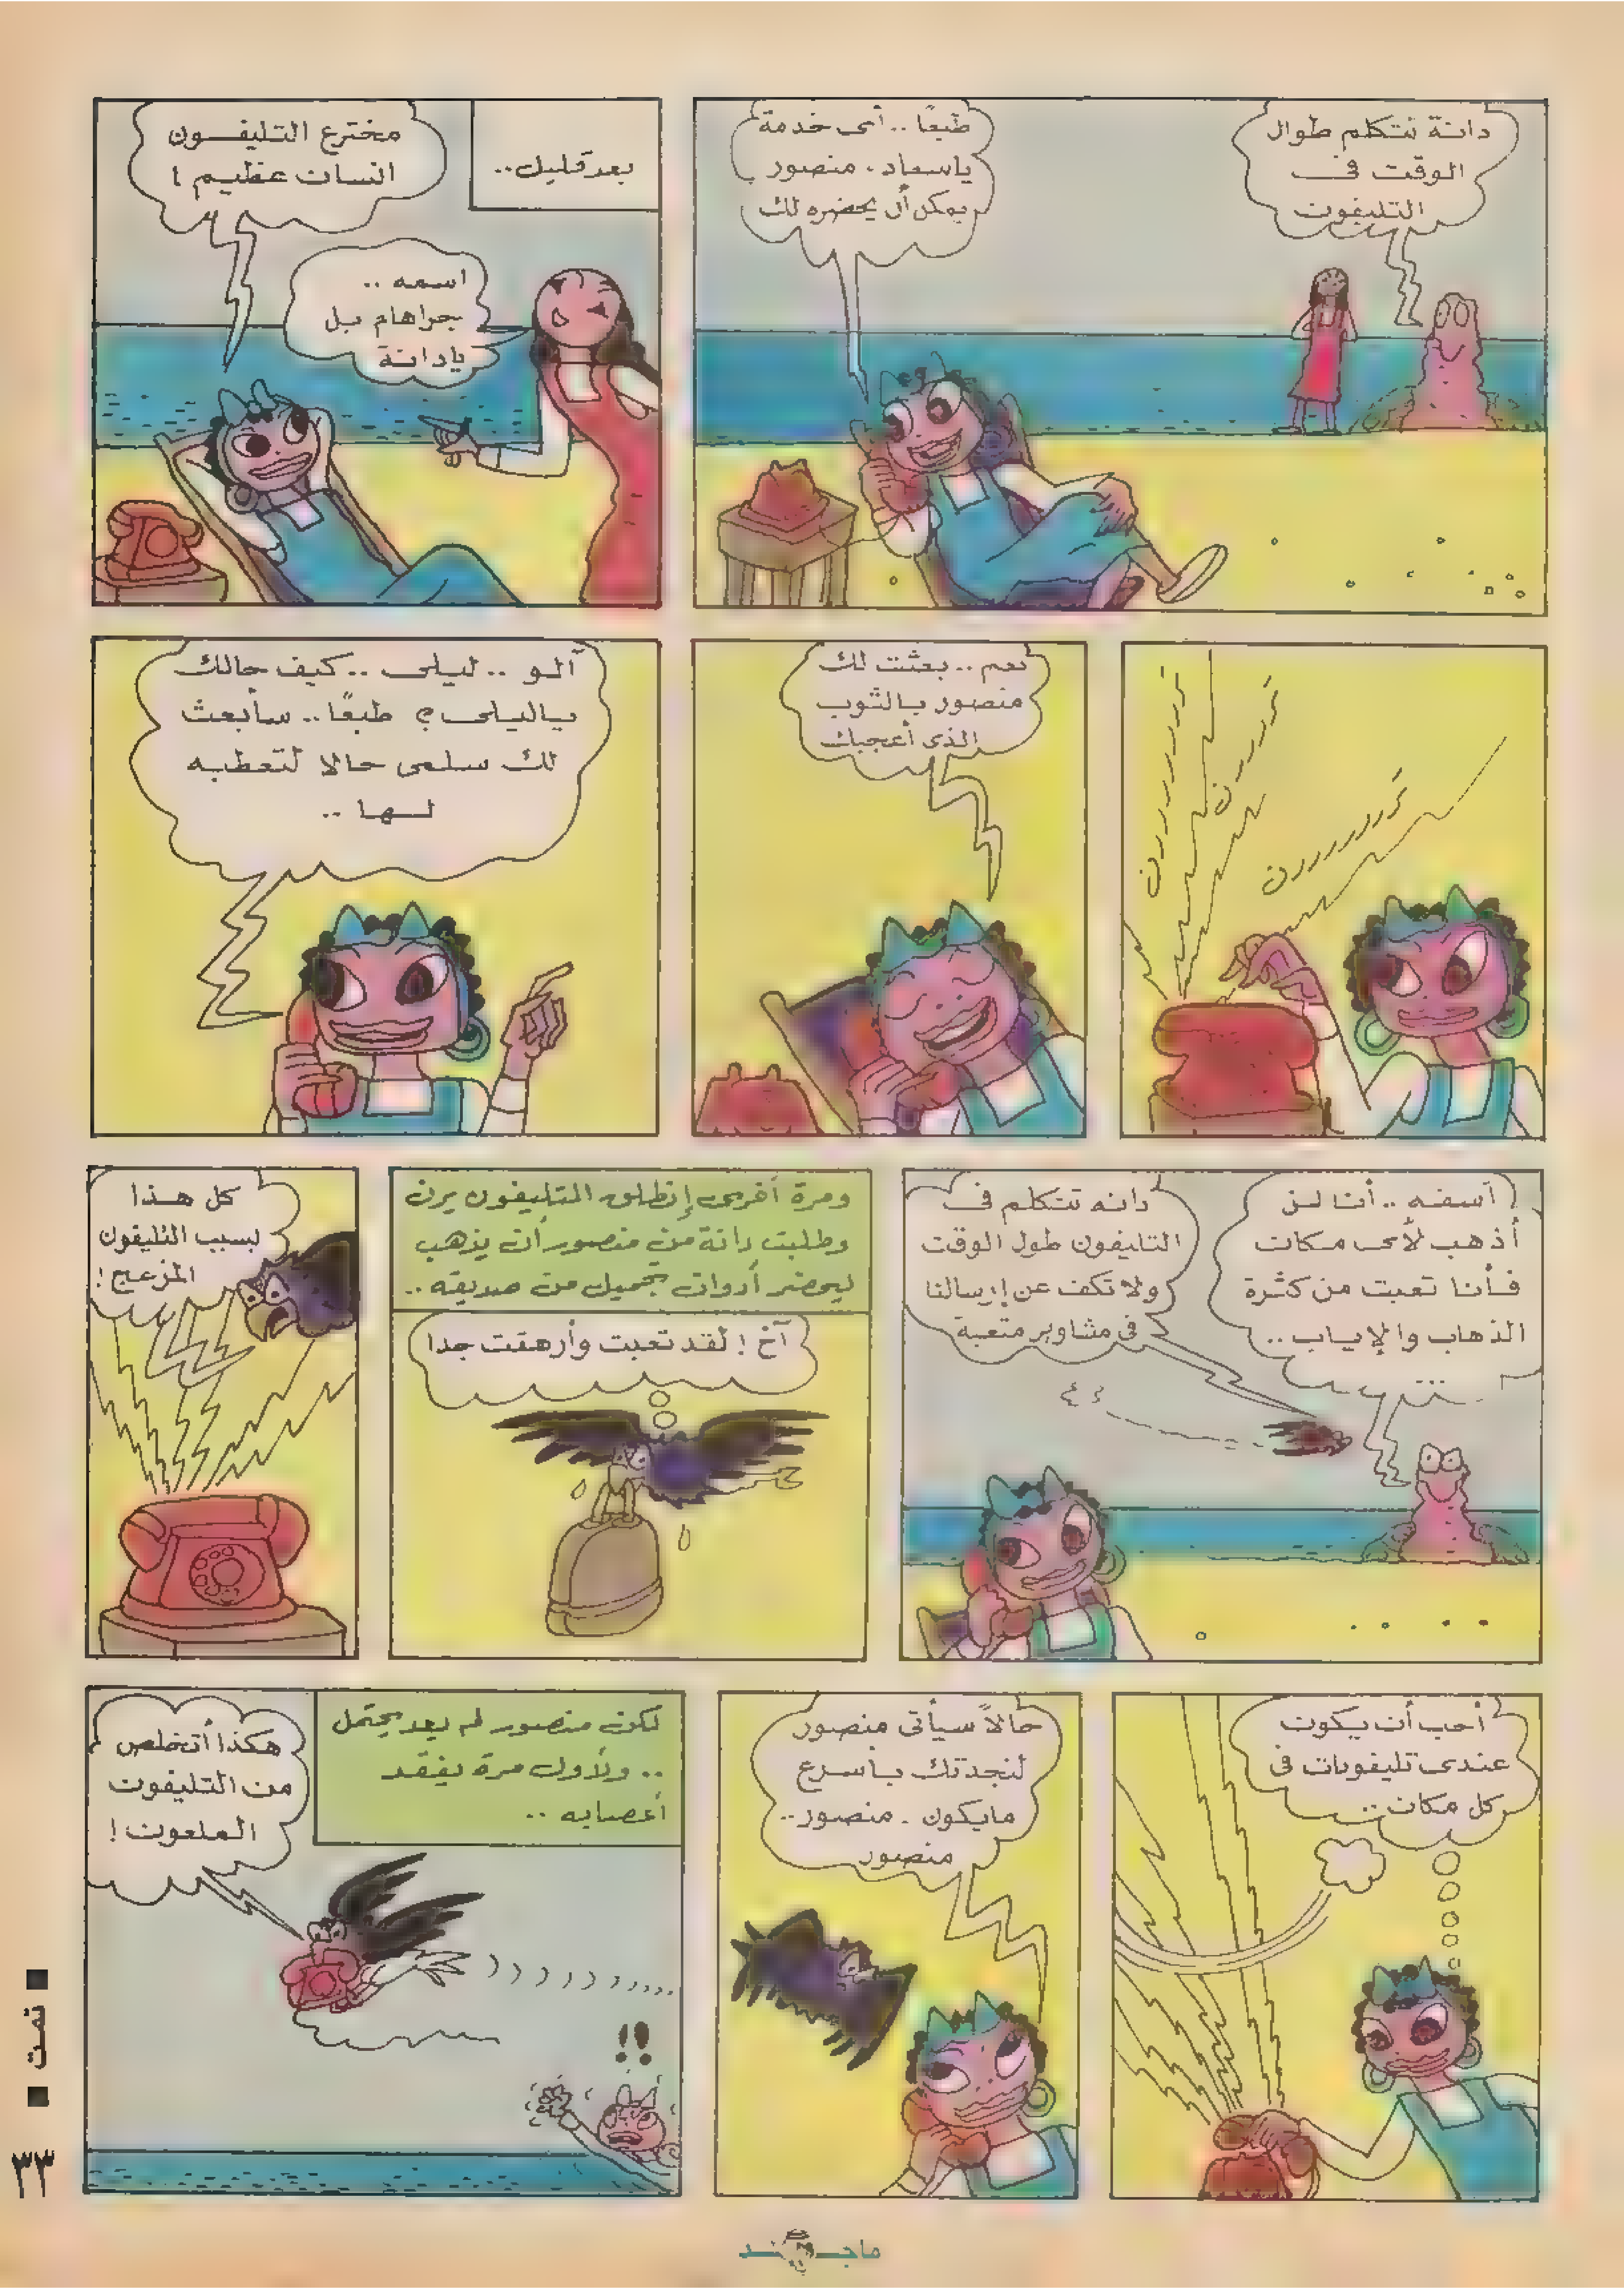 دانة تتكلم طوال
الوقت فى
التليفون
طبعًا .. أى خدمة
ياسعاد . منصور
يمكن أن يحضره لك
بعد قليل ..
مخترع التليفـون
انسان عظيم !
اسمه ..
جراهام بل
يادانة
تررررررررن
تررررررن
تررررررررن
نعم .. بعثت لك
منصور بالثوب
الذى أعجبك
آلو .. ليلى .. كيف حالك
ياليلى ؟ طبعًا .. سأبعث
لك سلمى حالا لتعطيه
لـها ..
آسفه .. أنا لـن
أذهب لأى مكان
فأنا تعبت من كثرة
الذهاب والإياب ..
دانه تتكلم فى
التليفون طول الوقت
ولا تكف عن إرسالنا
فى مشاوير متعبة
ومرة أخرى إنطلق التليفون يرن
وطلبت دانة من منصور أن يذهب
ليحضر أدوات تجميل من صديقه ..
آخ ! لقد تعبت وأرهقت جدا
كل هذا
بسبب التليفون
المزعج !
أحب أن يكون
عندى تليفونات فى
كل مكان ..
حالاً سيأتى منصور
لنجدتك بأسرع
مايكون . منصور ..
منصور
لكن منصور لم يعد يحتمل
.. ولأول مرة يفقد
أعصابه ..
هكذا أتخلص
من التليفون
الملعون !
!!
■ تمت ■
٣٣
ماجـد